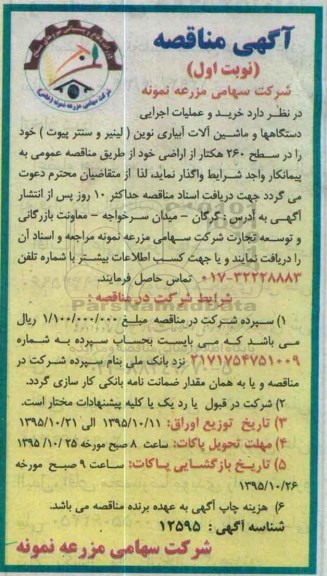 آگهی مناقصه
(نوبت اول)
شرکت سهامی مزرعه نمونه
در نظر دارد خرید و عملیات اجرایی
دستگاهها و ماشین آلات آبیاری نوین ( لینیر و سنتر پیوت ) خود
را در سطح ۲۶۰ هکتار از اراضی خود از طریق مناقصه عمومی به
پیمانکار واجد شرایط واگذار نماید، لذا از متقاضیان محترم دعوت
می گردد جهت دریافت اسناد مناقصه حداکثر ۱۰ روز پس از انتشار
آگهی به آدرس : گرگان – میدان سرخواجه – معاونت بازرگانی
و توسعه تجارت شرکت سهامی مزرعه نمونه مراجعه و اسناد آن
را دریافت نمایند و یا جهت کسب اطلاعات بیشتر با شماره تلفن
۰۱۷-۳۲۲۲۸۸۸۳ تماس حاصل فرمایند.
شرایط شرکت در مناقصه :
۱) سپرده شرکت در مناقصه مبلغ ۱/۱۰۰/۰۰۰/۰۰۰ ریال
می باشد که می بایست بحساب سپرده به شماره
۲۱۷۱۷۵۴۷۵۱۰۰۹ نزد بانک ملی بنام سپرده شرکت در
مناقصه و یا به همان مقدار ضمانت نامه بانکی کار سازی گردد.
۲) شرکت در قبول یا رد یک یا کلیه پیشنهادات مختار است.
۳) تاریخ توزیع اوراق: ۱۳۹۵/۱۰/۱۱ الی ۱۳۹۵/۱۰/۲۱
۴) مهلت تحویل پاکات: ساعت ۸ صبح مورخه ۲۵ /۱۰/ ۱۳۹۵
۵) تاریخ بازگشایی پاکات: ساعت ۹ صبح مورخه
۱۳۹۵/۱۰/۲۶
۶) هزینه چاپ آگهی به عهده برنده مناقصه می باشد.
شناسه آگهی : ۱۲۵۹۵
شرکت سهامی مزرعه نمونه